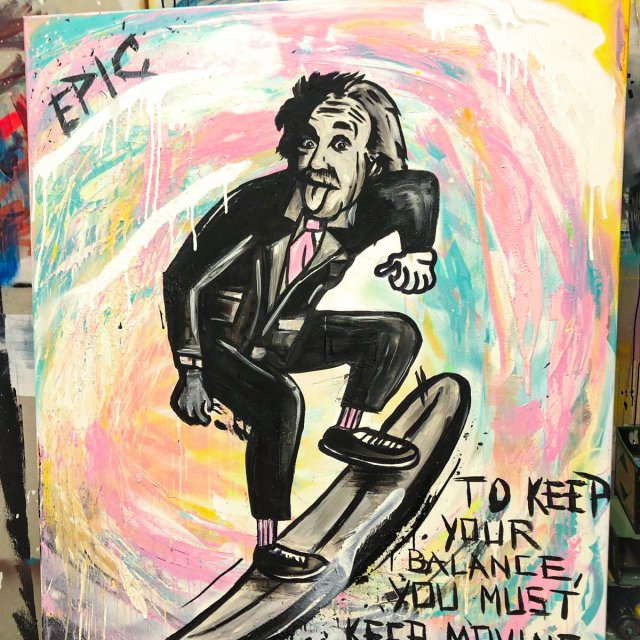 EPIC
TO KEEP
YOUR
BALANCE,
YOU MUST
KEEP